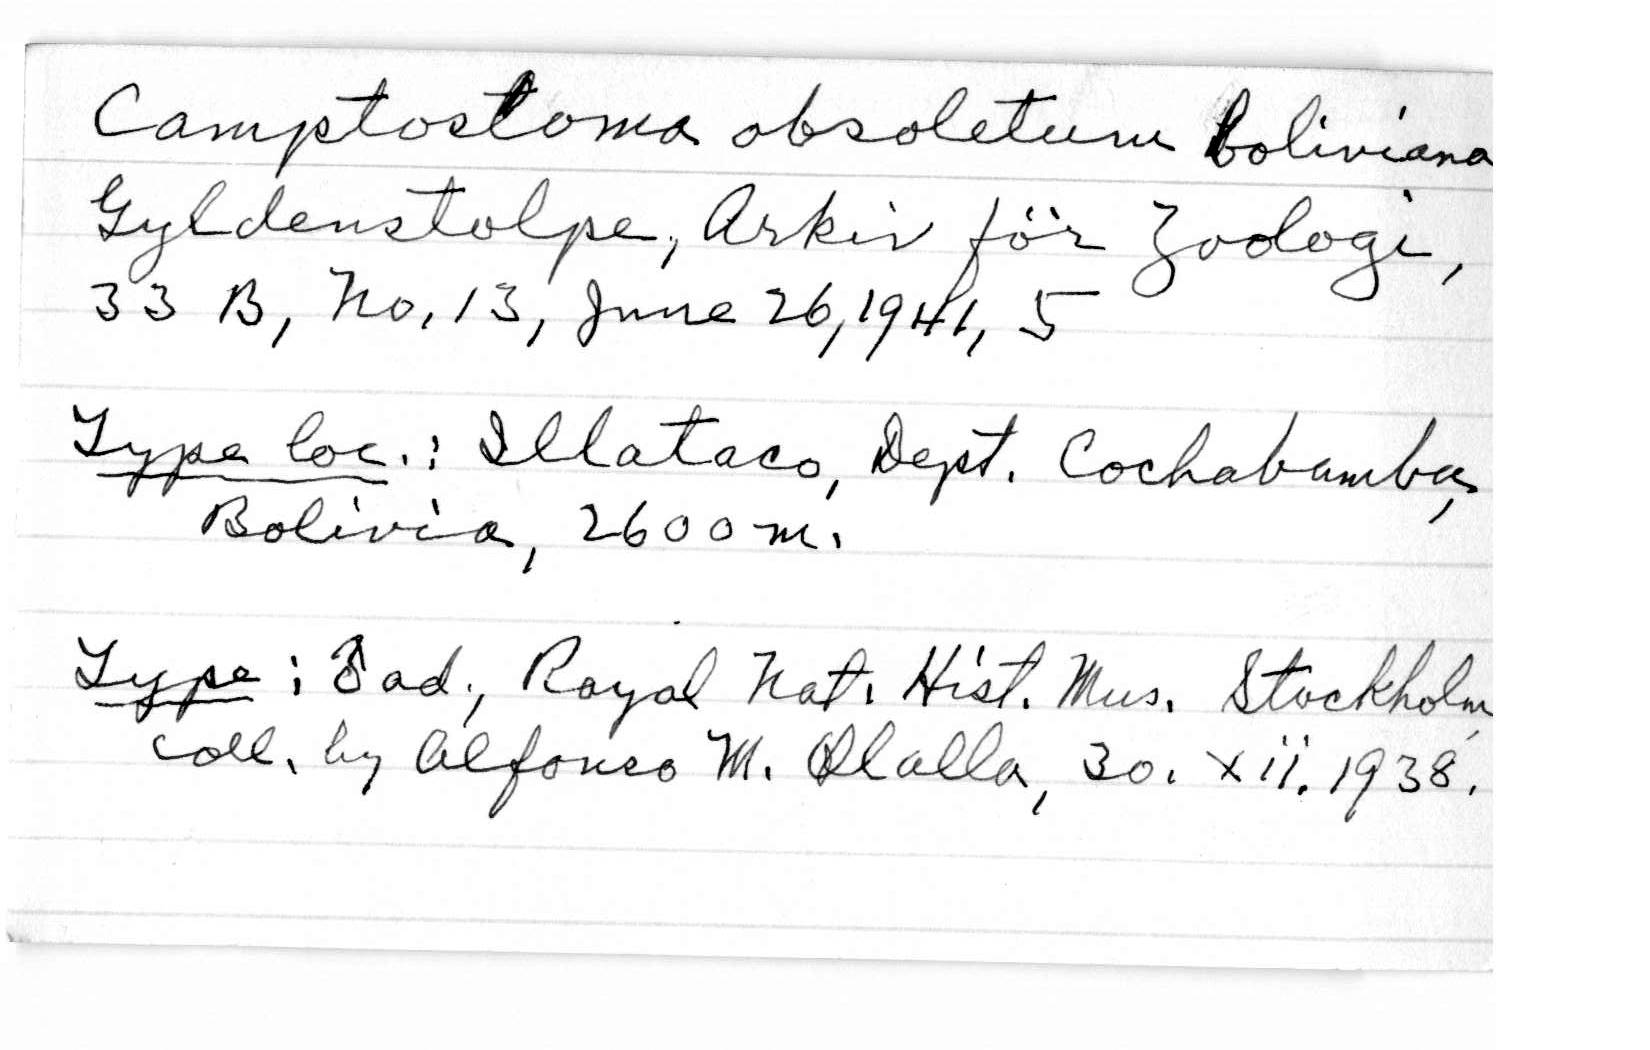 Camptostoma obsoletum boliviana
Gyldenstolpe, Arkiv för Zoologi,
33 B, No. 13, June 26, 1941, 5
Type loc.: Illataco, Dept. Cochabamba,
Bolivia, 2600 m.
Type: ♂ ad., Royal Nat. Hist. Mus. Stockholm,
coll. by Alfonso M. Olalla, 30. xii. 1938.